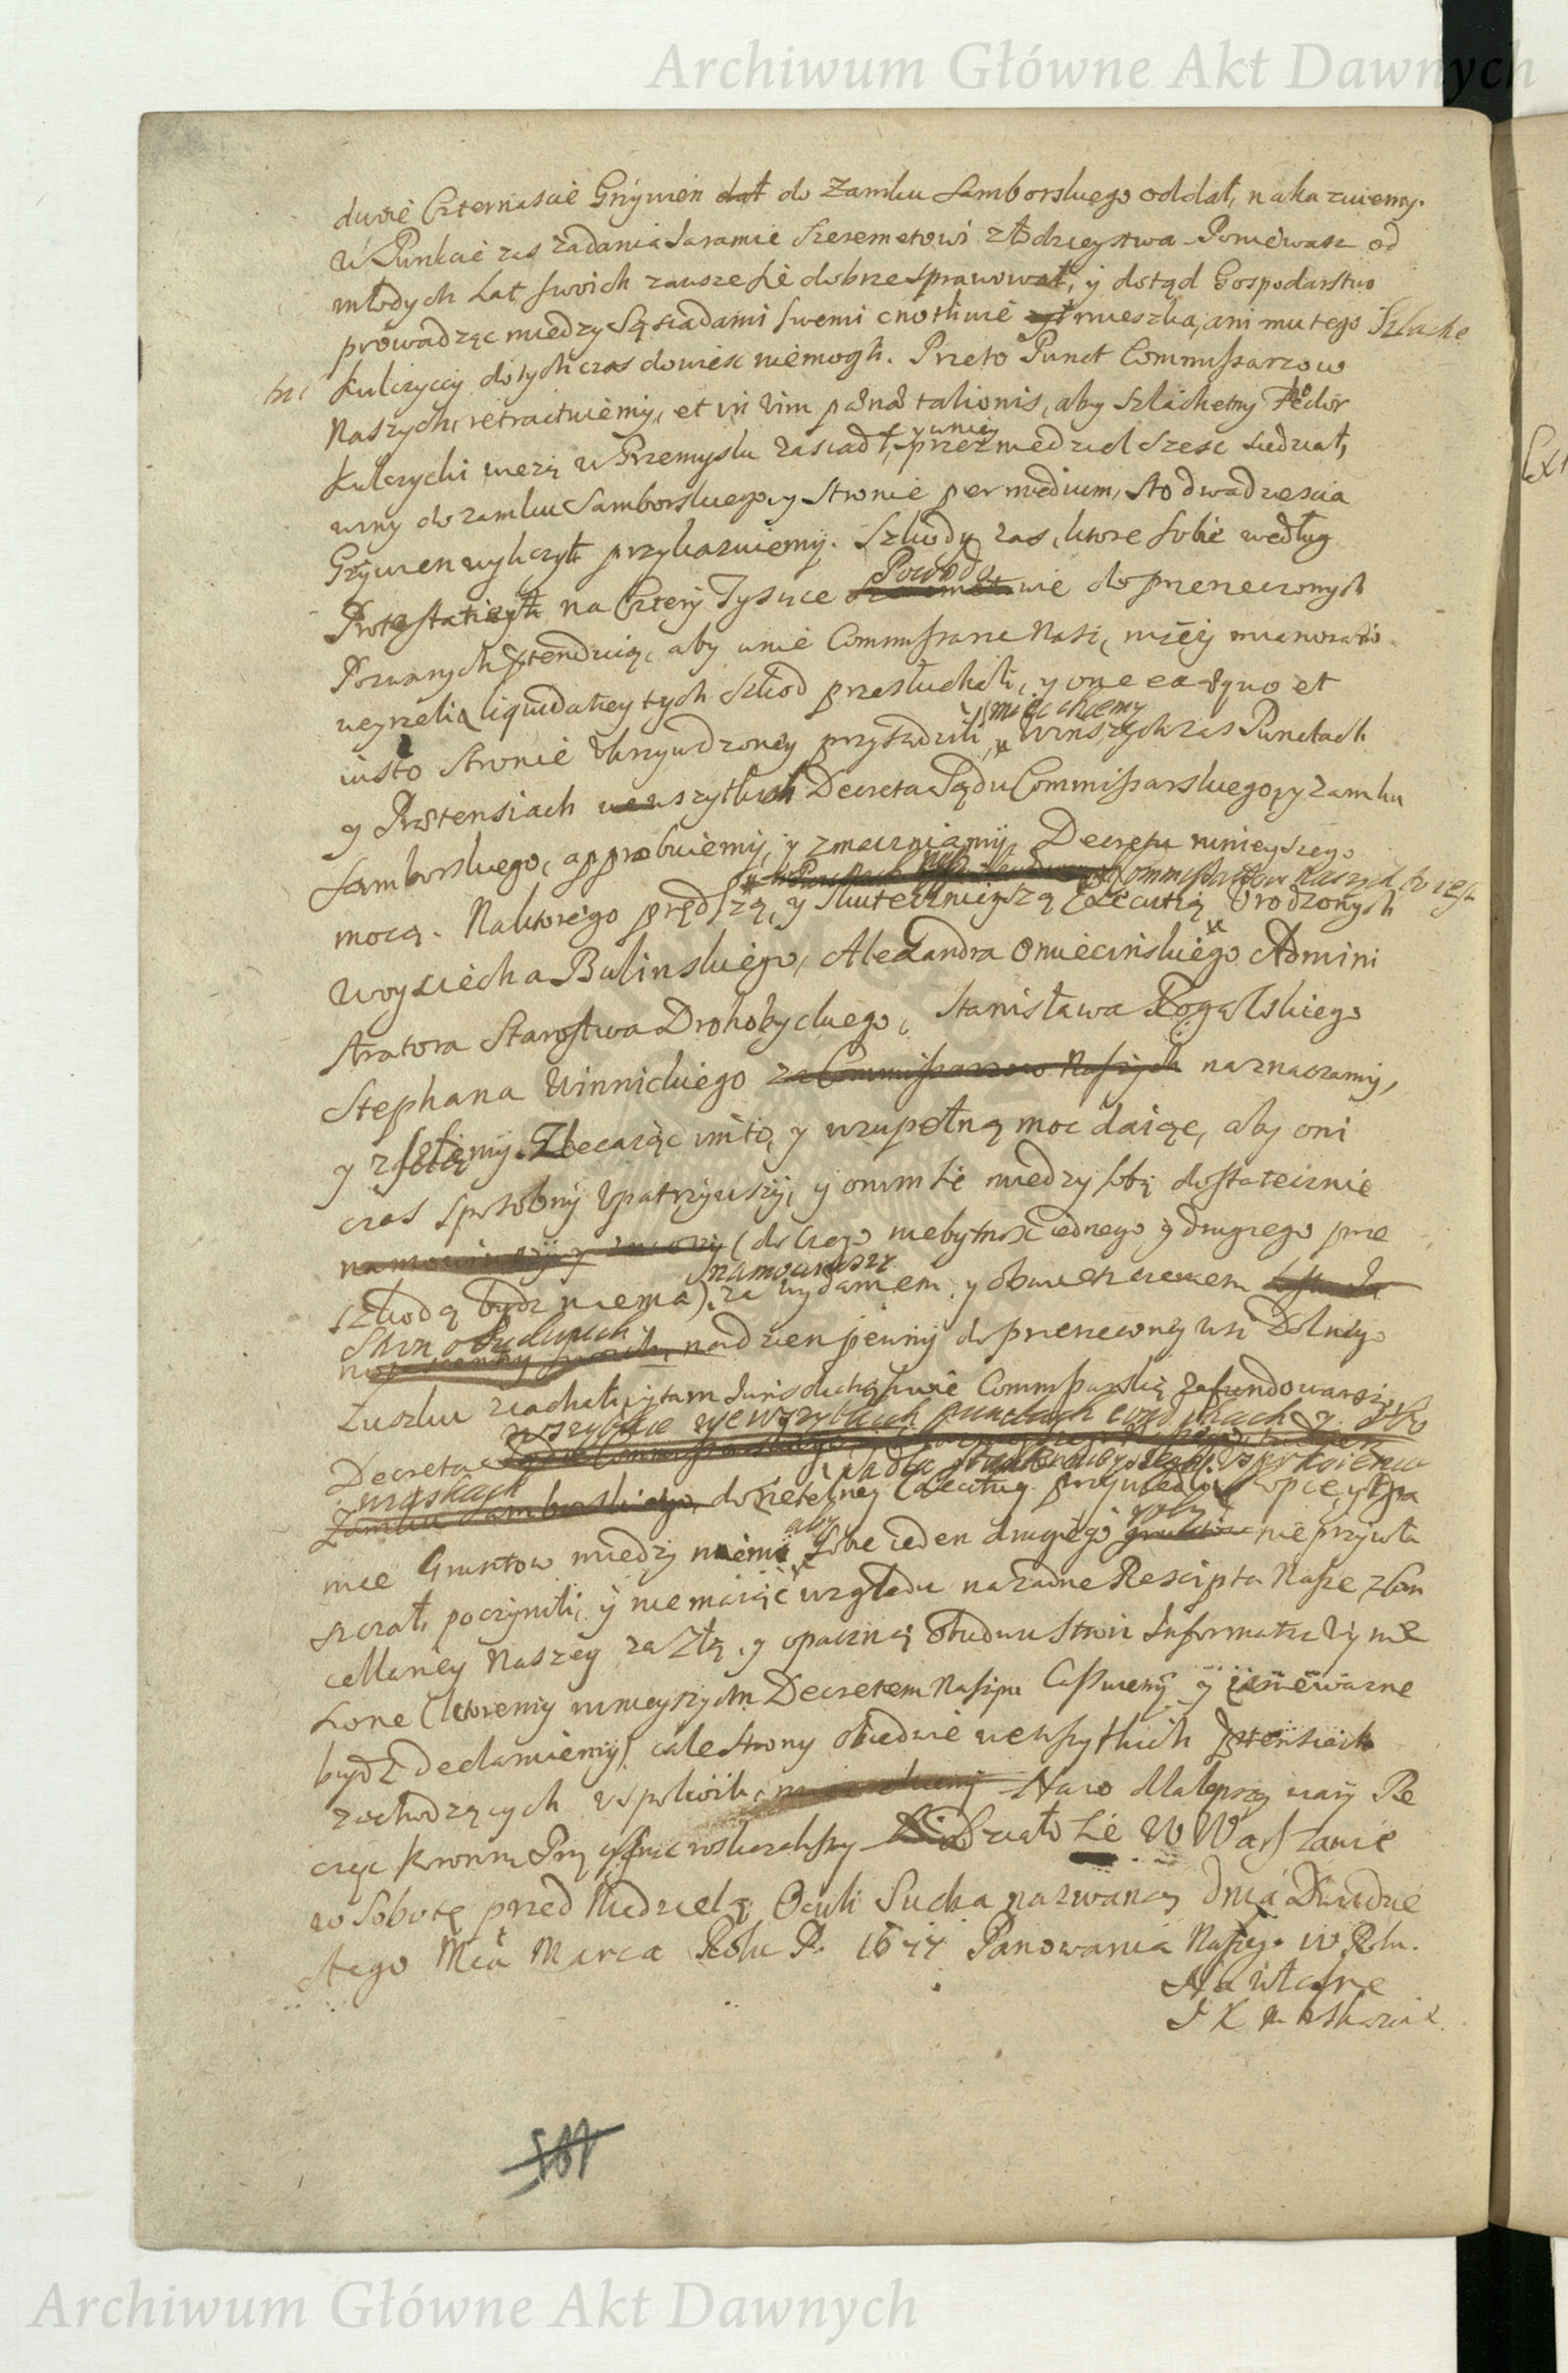 Archiwum Główne Akt Dawnych
dwie Czternascie Grzywien dał do Zamku Samborskiego oddał, nakazuiemy.
W Punkcie zas zadania Jaramie Szeremetowi złodzieystwa Poniewasz od
młodych Lat swoich zawsze sie dobrze sprawował, y dotąd Gospodarstwo
prowadząc miedzy Sąsiadami swemi cnotliwie żył mieszka, ani mu tego Szlache
tni Kulczyccy dotychczas dowiesc niemogli. Przeto Punct Commissarzow
Naszych, retractuiemy, et in vim pœnæ talionis, aby Szlachetny Fedor
Kulczycki wieżą w Przemyslu zasiadł, y w niey przez niedziel szesc siedział,
winy do zamku Samborskiego, y Stronie per medium, sto dwadziescia
Grzywien wyliczył przykazuiemy. Szkody zas, ktore sobie według
Powodo
Protestacyi na Cztery Tysiące wie do przerzeczonych
Pozwanych prætenduią, aby w nie Commissarze Nasi, niżej mianowani
weyrzeli, liquidatiey tych szkod przesłuchali, y one ex æquo et
miec chcemy
iusto Stronie ukrzywdzoney przysądzili, W inszych zas Punctach
y Prætensiach wewszytkich Decreta Sądu Commissarskiego, y Zamku
Samborskiego, approbuiemy, y zmacniamy Decretu ninieyszego
Commissarzow Naszych to iest
mocą. Naktorego prędszą, y skutecznieyszą Executią Urodzonych
Woyciecha Bulinskiego, Alexandra Omiecinskiego Admini
stratora Starostwa Drohobyckiego, Stanisława Rogalskiego
Stephana Winnickiego za Commissarzow Naszych naznaczamy,
y zsełamy. Zlecaiąc im to, y wzupełną moc daiąc, aby oni
czas sposobny upatrzywszy, y onim sie miedzy sobą dostatecznie
namowiwszy y zniozszy (do czego niebytnosc iednego y drugiego prze
namowiwszy
szkodą bydz niema), za wydaniem y obwieszczeniem
Stron obudwuch
na dzien pewny do przerzeczoney wsi Dolnego
Łuszku ziachali, y tam Jurisdictią swoie Commissarską zafundowawszy,
wszytkie we wszytkich punctach
Decreta
Zamku Samborskiego, do rzetelney Executiey przywiedli, Kopce, y Gra
aby
nice Gruntow miedzy niemi, sobie ieden drugiego gruntow nie przywła
szczał, poczynili, y nie maiąc względu na żadne Rescripta Nasze z Can
cellariey Naszey za złą, y opaczną obudwu stron Informatią wynie
sione (ktoremy ninieyszym Decretem Naszym Cassuiemy y za niewazne
bydź declaruiemy) cale Strony obiedwie wewszytkich prætensiach
zachodzących uspokoili, miec chcemy Naco dla lepszey wiary Pie
częc Koronną Przycisnąc roskazalismy Działo sie W Warszawie
w Sobotę przed Niedzielą Oculi Sucha nazwaney dnia Dwudzie
stego Mca Marca Roku P. 1677 Panowania Naszego W Roku.
Na własne
J K M roskazanie
Archiwum Główne Akt Dawnych